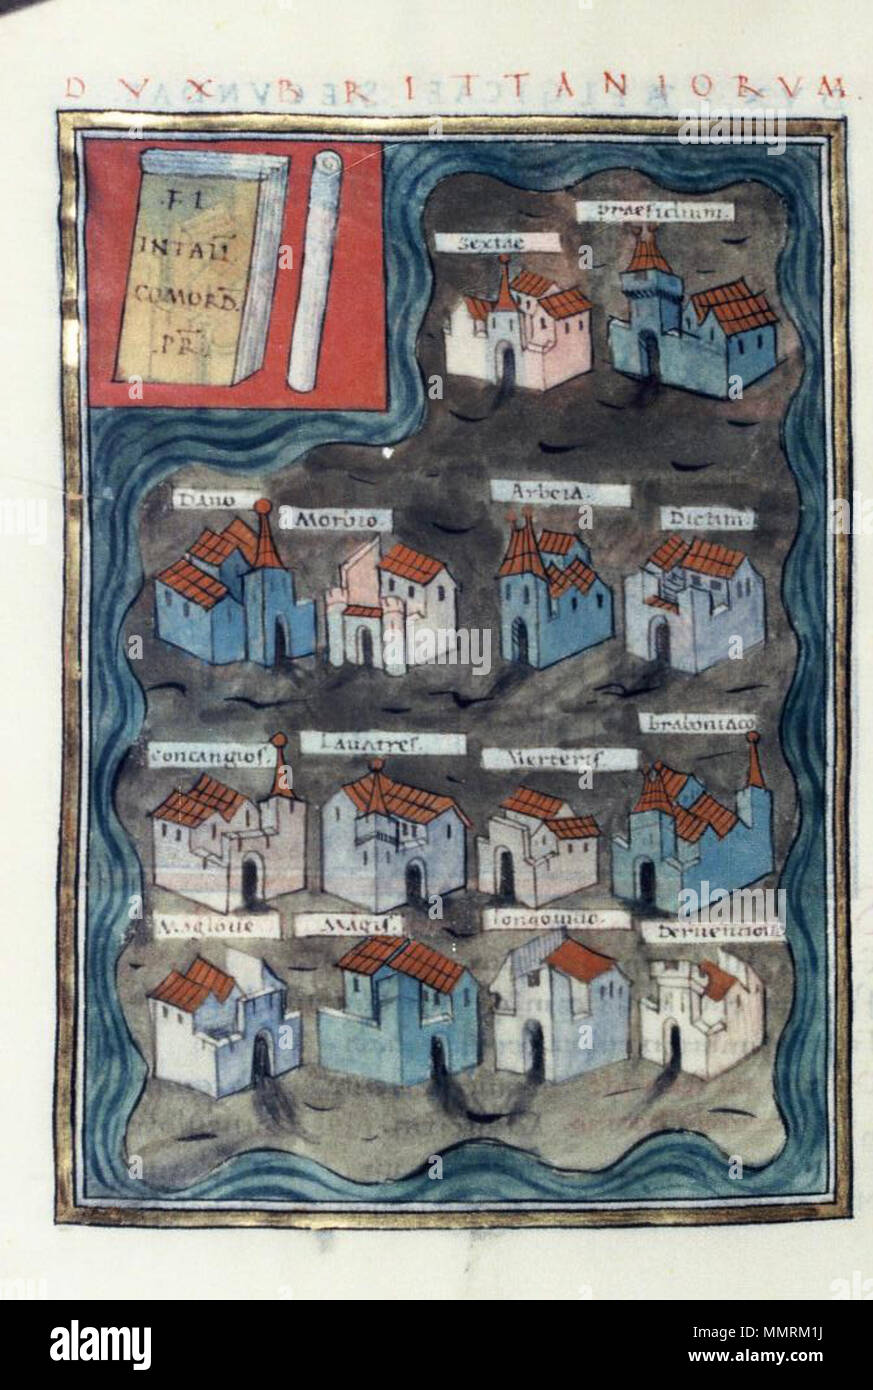 DVX BRITTANIORVM.
.FL
INTALL
COMORD.
.PR
Sextae
Praefidium.
Dano
Morbio.
Arbeia.
Dictim.
Concangios.
Lauatres.
Verteris.
braboniaco
Magloue
Magis.
longouicio.
Deruentio
alamy
Image ID: MMRM1J
www.alamy.com